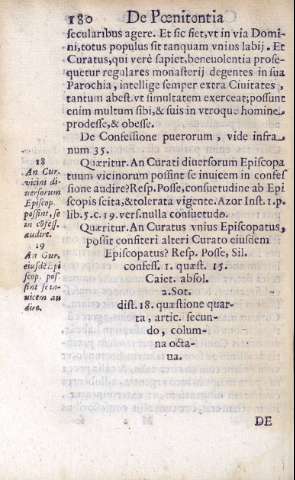 180 De Pœnitontia
secularibus agere. Et sic fiet, vt in via Domi-
ni, totus populus sit tanquam vnius labij. Et
Curatus, qui verè sapiet, beneuolentia prose-
quetur regulares monasterij degentes in sua
Parochia, intellige semper extra Ciuitates,
tantum abest. vt simultatem exerceat; possunt
enim multum sibi, & suis in vtroque homine,
prodesse, & obesse.
De Confessione puerorum, vide infra
num 35.
18
An Cur.
vicini di-
uersorum
Episcop.
possint, se
in cōfess.
audire.
Quæritur. An Curati diuersorum Episcopa
tuum vicinorum possint se inuicem in confes
sione audire? Resp. Posse, consuetudine ab Epi
scopis scita, & tolerata vigente. Azor Inst. 1. p.
lib. 5. c. 19. vers. nulla consuetudo.
19
An Cur.
eiusdē Epi
scop. pos-
sint se in-
uicem au
dire.
Quæritur. An Curatus vnius Episcopatus,
possit confiteri alteri Curato eiusdem
Episcopatus? Resp. Posse, Sil.
confess. 1. quæst. 15.
Caiet. absol.
2. Sot.
dist. 18. quæstione quar-
ta, artic. secun-
do, colum-
na octa-
ua.
DE